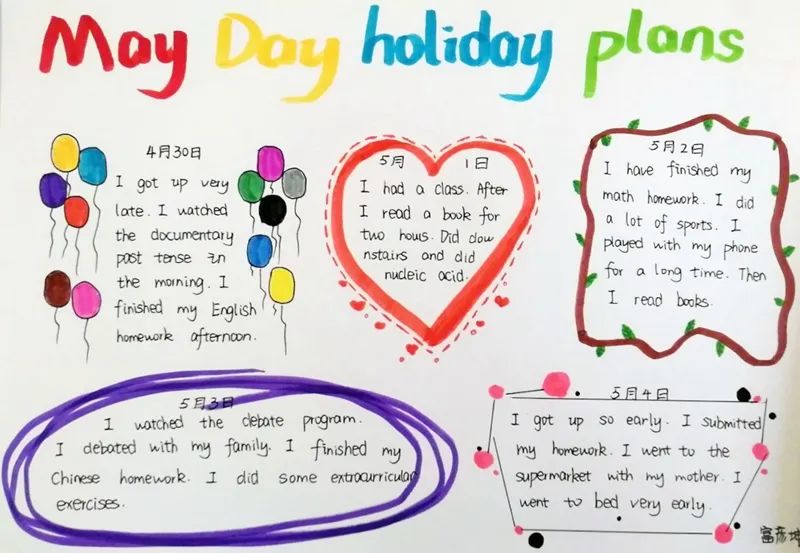 May Day holiday plans
4月30日
I got up very
late. I watched
the documentary
past tense in
the morning. I
finished my English
homework afternoon.
5月 1日
I had a class. After
I read a book for
two hous. Did dow
nstairs and did
nucleic acid.
5月2日
I have finished my
math homework. I did
a lot of sports. I
played with my phone
for a long time. Then
I read books.
5月3日
I watched the debate program.
I debated with my family. I finished my
Chinese homework. I did some extracurricular
exercises.
5月4日
I got up so early. I submitted
my homework. I went to the
supermarket with my mother. I
went to bed very early.
富彦坤